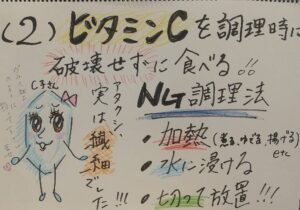 (2) ビタミンCを調理時に
破壊せずに食べる!!
C子さん
アタクシ、
実は繊細
でした!!!
NG調理法
・加熱(煮る、ゆでる、揚げる)
etc
・水に浸ける
・切って放置!!!